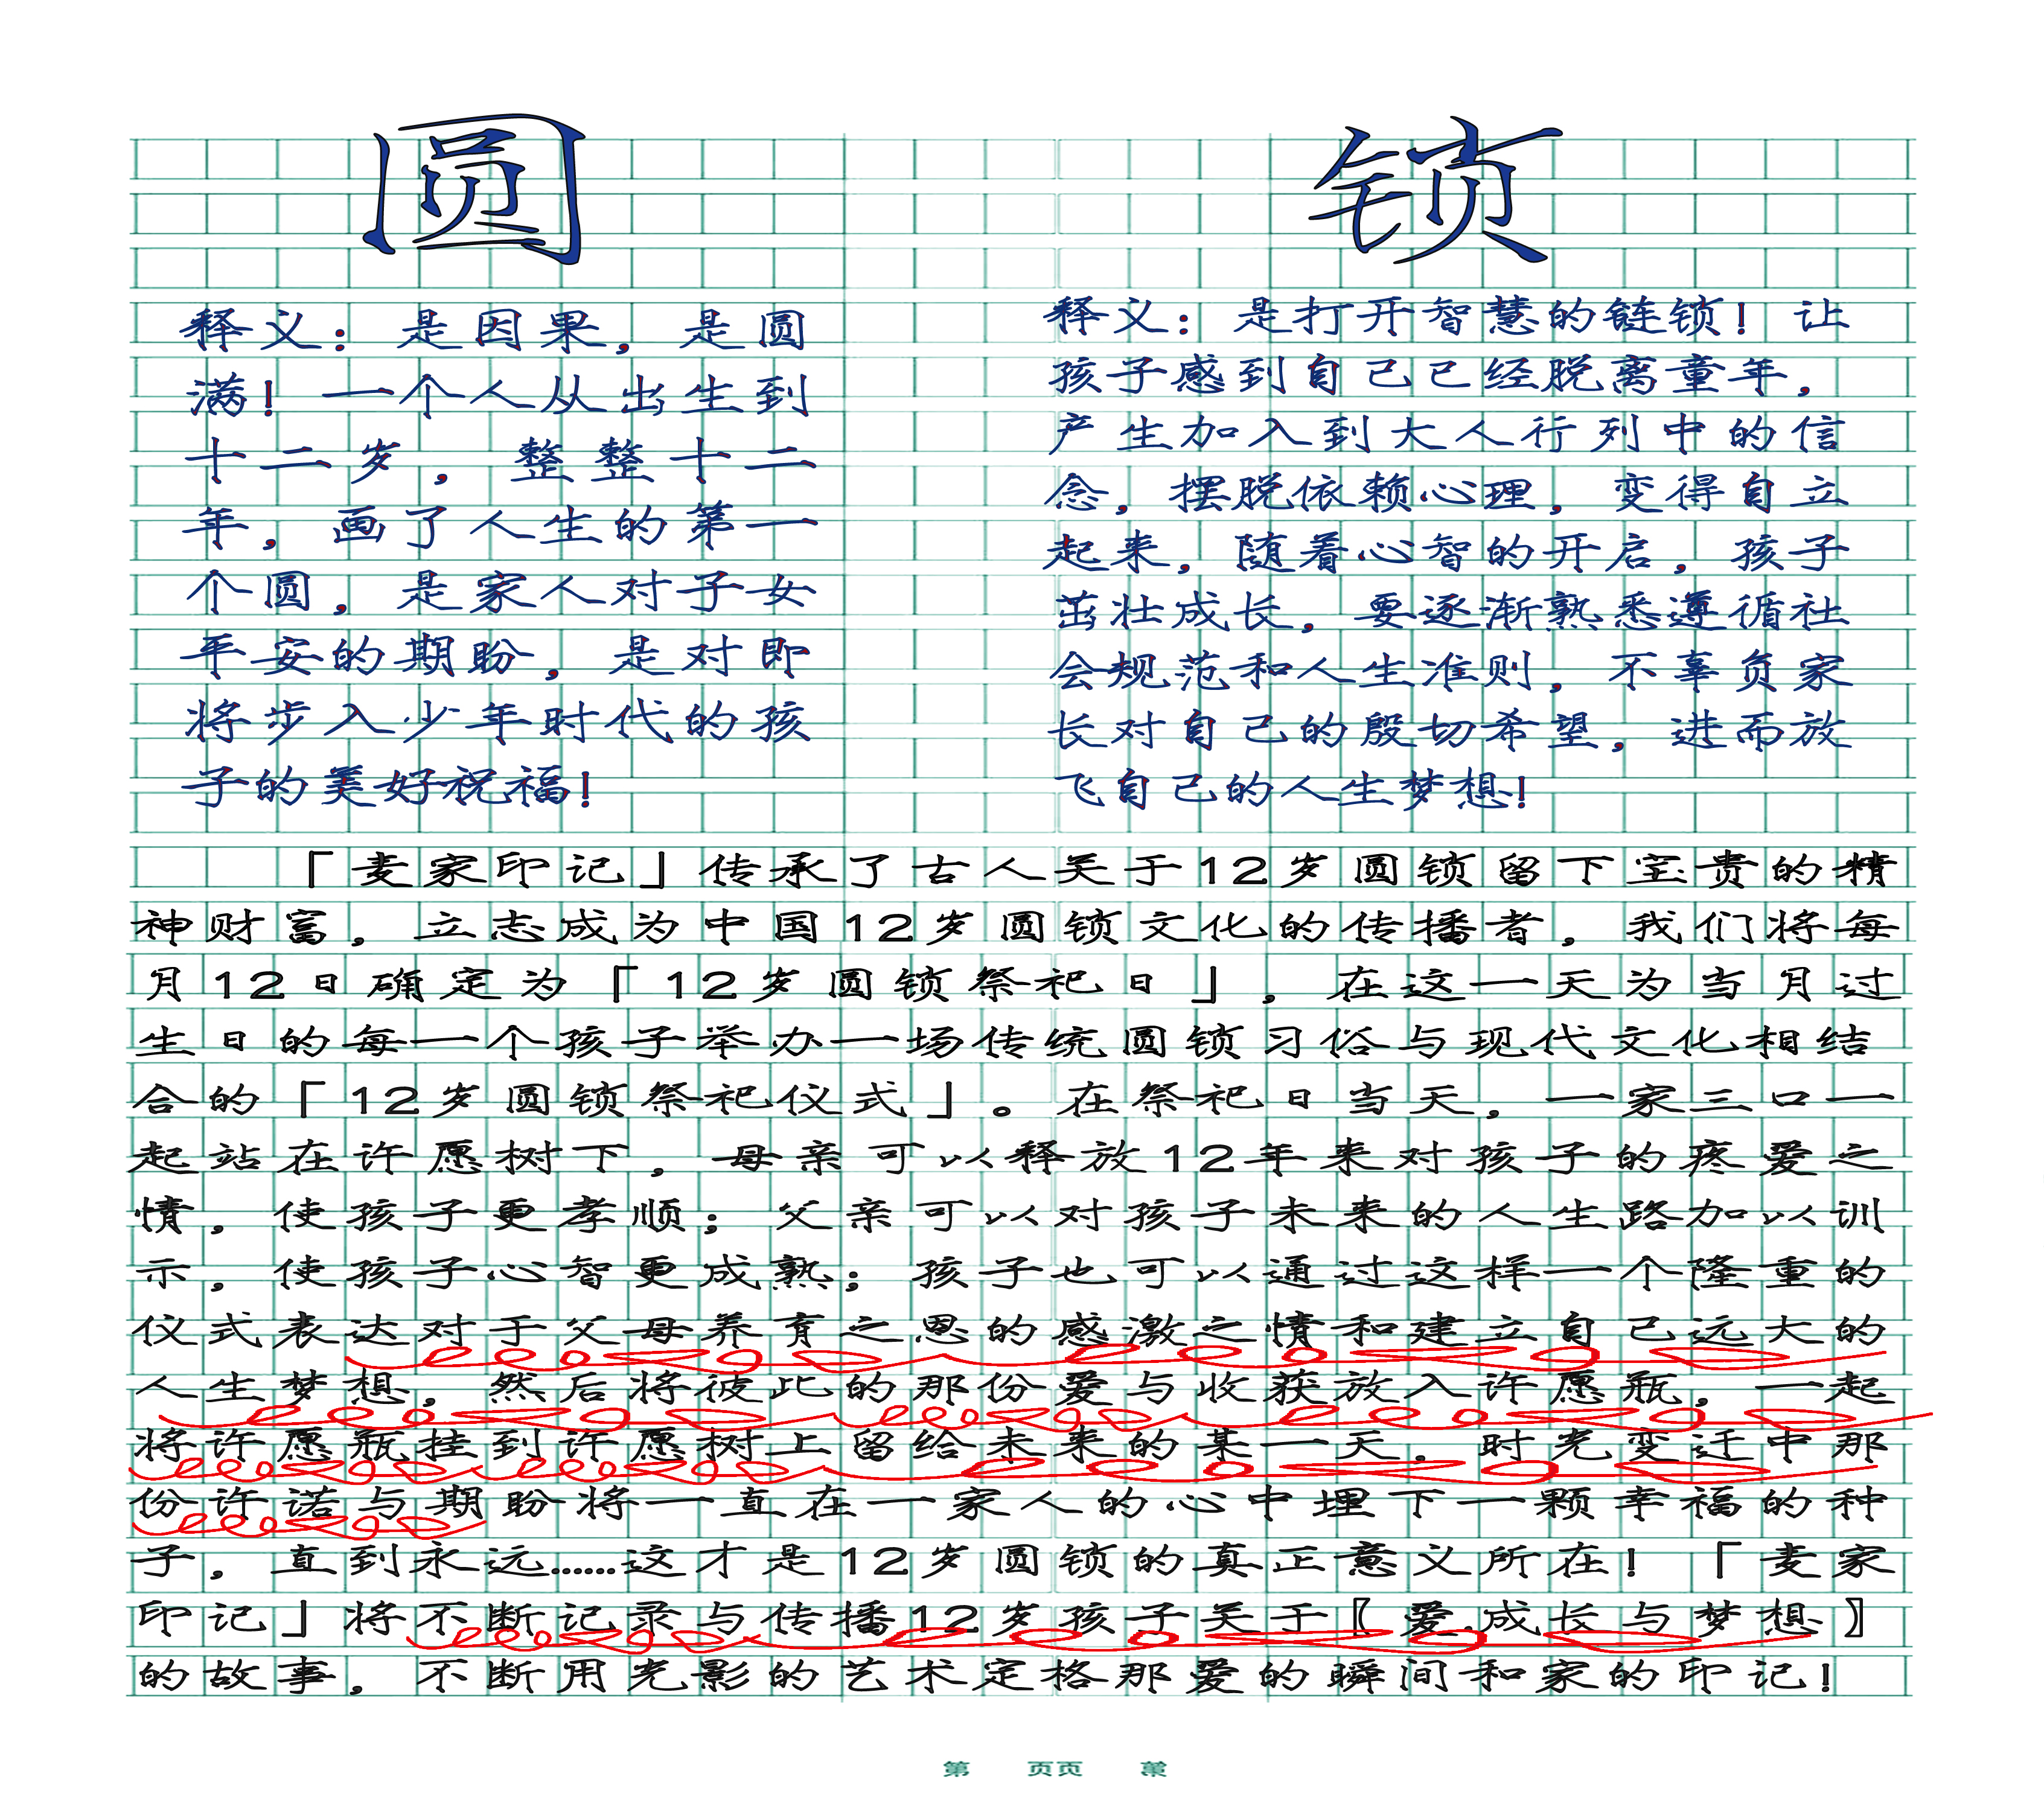 圆
释义：是因果，是圆
满！一个人从出生到
十二岁，整整十二
年，画了人生的第一
个圆，是家人对子女
平安的期盼，是对即
将步入少年时代的孩
子的美好祝福！
锁
释义：是打开智慧的链锁！让
孩子感到自己已经脱离童年，
产生加入到大人行列中的信
念，摆脱依赖心理，变得自立
起来，随着心智的开启，孩子
茁壮成长，要逐渐熟悉遵循社
会规范和人生准则，不辜负家
长对自己的殷切希望，进而放
飞自己的人生梦想！
「麦家印记」传承了古人关于12岁圆锁留下宝贵的精
神财富，立志成为中国12岁圆锁文化的传播者，我们将每
月12日确定为「12岁圆锁祭祀日」，在这一天为当月过
生日的每一个孩子举办一场传统圆锁习俗与现代文化相结
合的「12岁圆锁祭祀仪式」。在祭祀日当天，一家三口一
起站在许愿树下，母亲可以释放12年来对孩子的疼爱之
情，使孩子更孝顺；父亲可以对孩子未来的人生路加以训
示，使孩子心智更成熟；孩子也可以通过这样一个隆重的
仪式表达对于父母养育之恩的感激之情和建立自己远大的
人生梦想，然后将彼此的那份爱与收获放入许愿瓶，一起
将许愿瓶挂到许愿树上留给未来的某一天，时光变迁中那
份许诺与期盼将一直在一家人的心中埋下一颗幸福的种
子，直到永远......这才是12岁圆锁的真正意义所在！「麦家
印记」将不断记录与传播12岁孩子关于〖爱.成长与梦想〗
的故事，不断用光影的艺术定格那爱的瞬间和家的印记！
第 页页 第